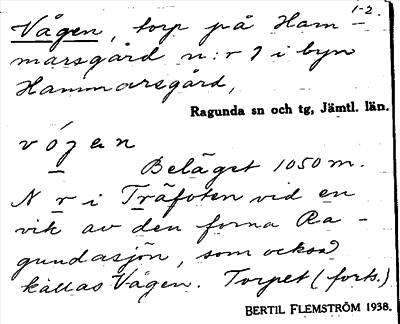 1-2.
Vågen, torp på Ham-
marsgård n:r 7 i byn
Hammarsgård,
Ragunda sn och tg, Jämtl. län.
vógen
Beläget 1050 m.
N r i Träfoten vid en
vik av den forna Ra-
gundasjön, som också
kallas Vågen. Torpet (forts.)
BERTIL FLEMSTRÖM 1938.